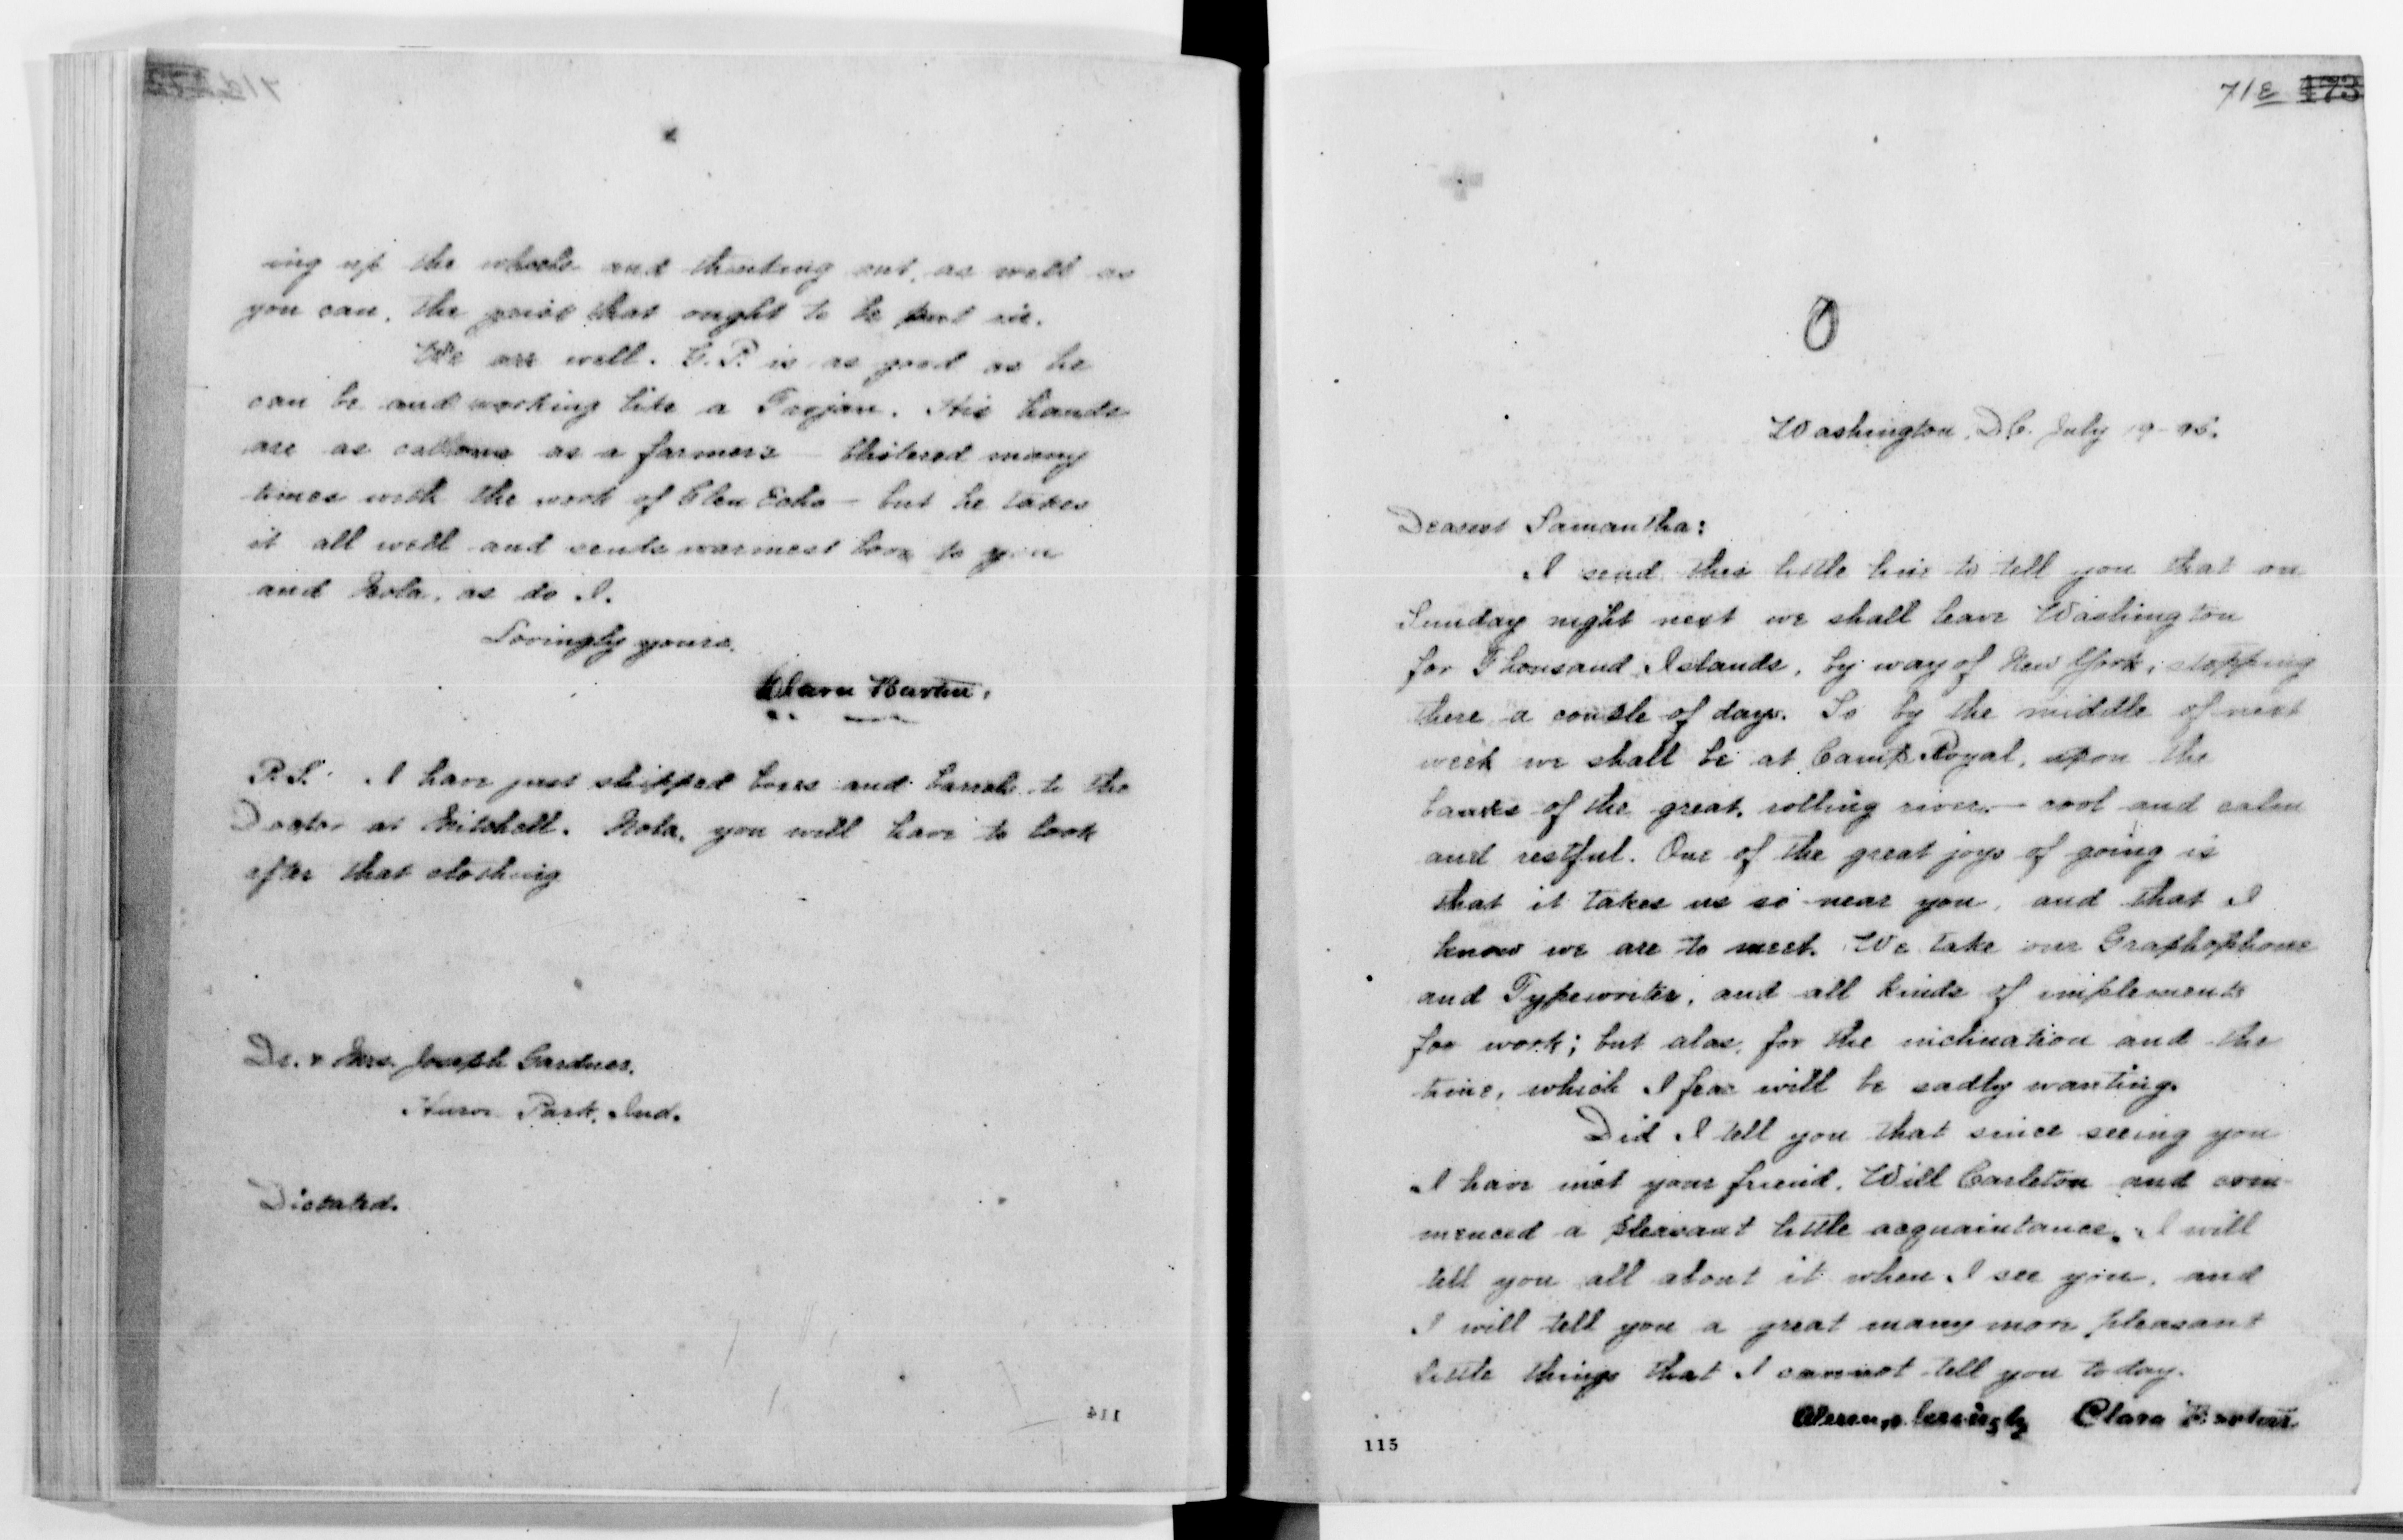 ing up the wheels and thinking out, as well as
you can, the grist that ought to be put in.
We are well. G. P. is as good as he
can be and working like a Trojan. His hands
are as callous as a farmers – blistered many
times with the work of Glen Echo – but he takes
it all well and sends warmest love to you
and Nola, as do I.
Lovingly yours,
Clara Barton.
P.S. I have just shipped boxes and barrels to the
Doctor at Mitchell. Nola, you will have to look
after that clothing
Dr. & Mrs. Joseph Gardner,
Park, Ind.
Dictated.
114
71e 173
Washington, D.C. July 19-95.
Dearest Samantha:
I send this little line to tell you that on
Sunday night next we shall leave Washington
for Thousand Islands, by way of New York, stopping
there a couple of days. So by the middle of next
week we shall be at Camp Royal, upon the
banks of the great, rolling river – cool and calm
and restful. One of the great joys of going is
that it takes us so near you, and that I
know we are to meet. We take our Graphophone
and Typewriter, and all kinds of implements
for work; but alas, for the inclination and the
time, which I fear will be sadly wanting.
Did I tell you that since seeing you
I have met your friend, Will Carleton and com-
menced a pleasant little acquaintance. I will
tell you all about it when I see you, and
I will tell you a great many more pleasant
little things that I cannot tell you today.
Clara Barton
115